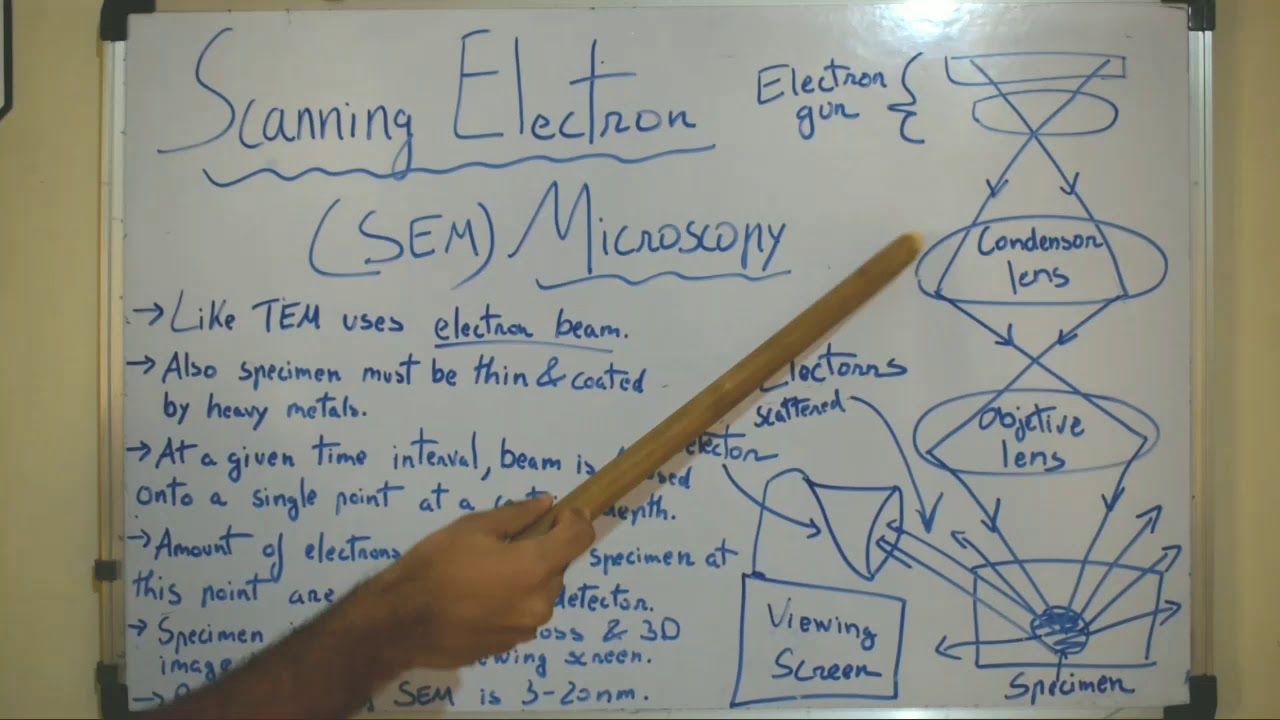 Scanning Electron
(SEM) Microscopy
→ Like TEM uses electron beam.
→ Also specimen must be thin & coated
by heavy metals.
→ At a given time interval, beam is
onto a single point at a depth.
→ Amount of electrons specimen at
this point are detector.
→ Specimen & 3D
image screen.
→ SEM is 3-20nm.
Electron
gun
Condensor
lens
Objctive
lens
Electorns
scattered
Viewing
Screen
Specimen